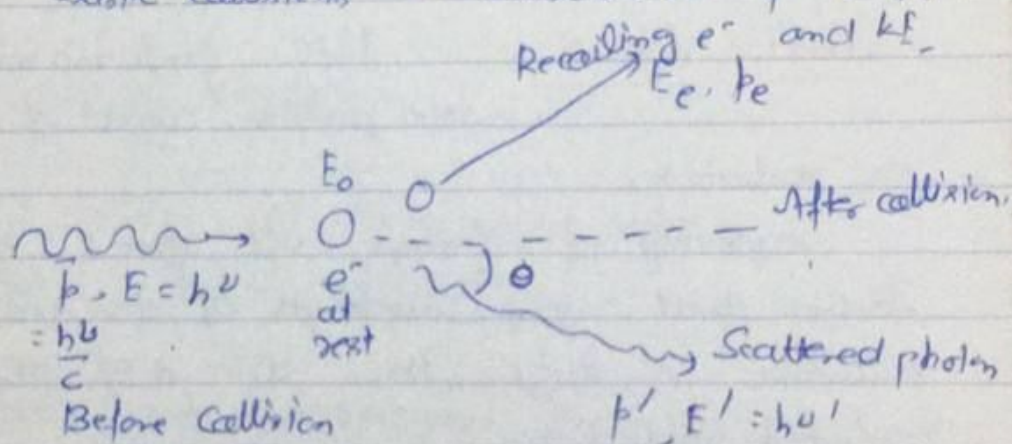 Recoiling e⁻ and KE
E_e, p_e
E₀
After collision.
p, E = hν
= hν/c
e⁻
at
rest
θ
Scattered photon
Before Collision
p′, E′ = hν′